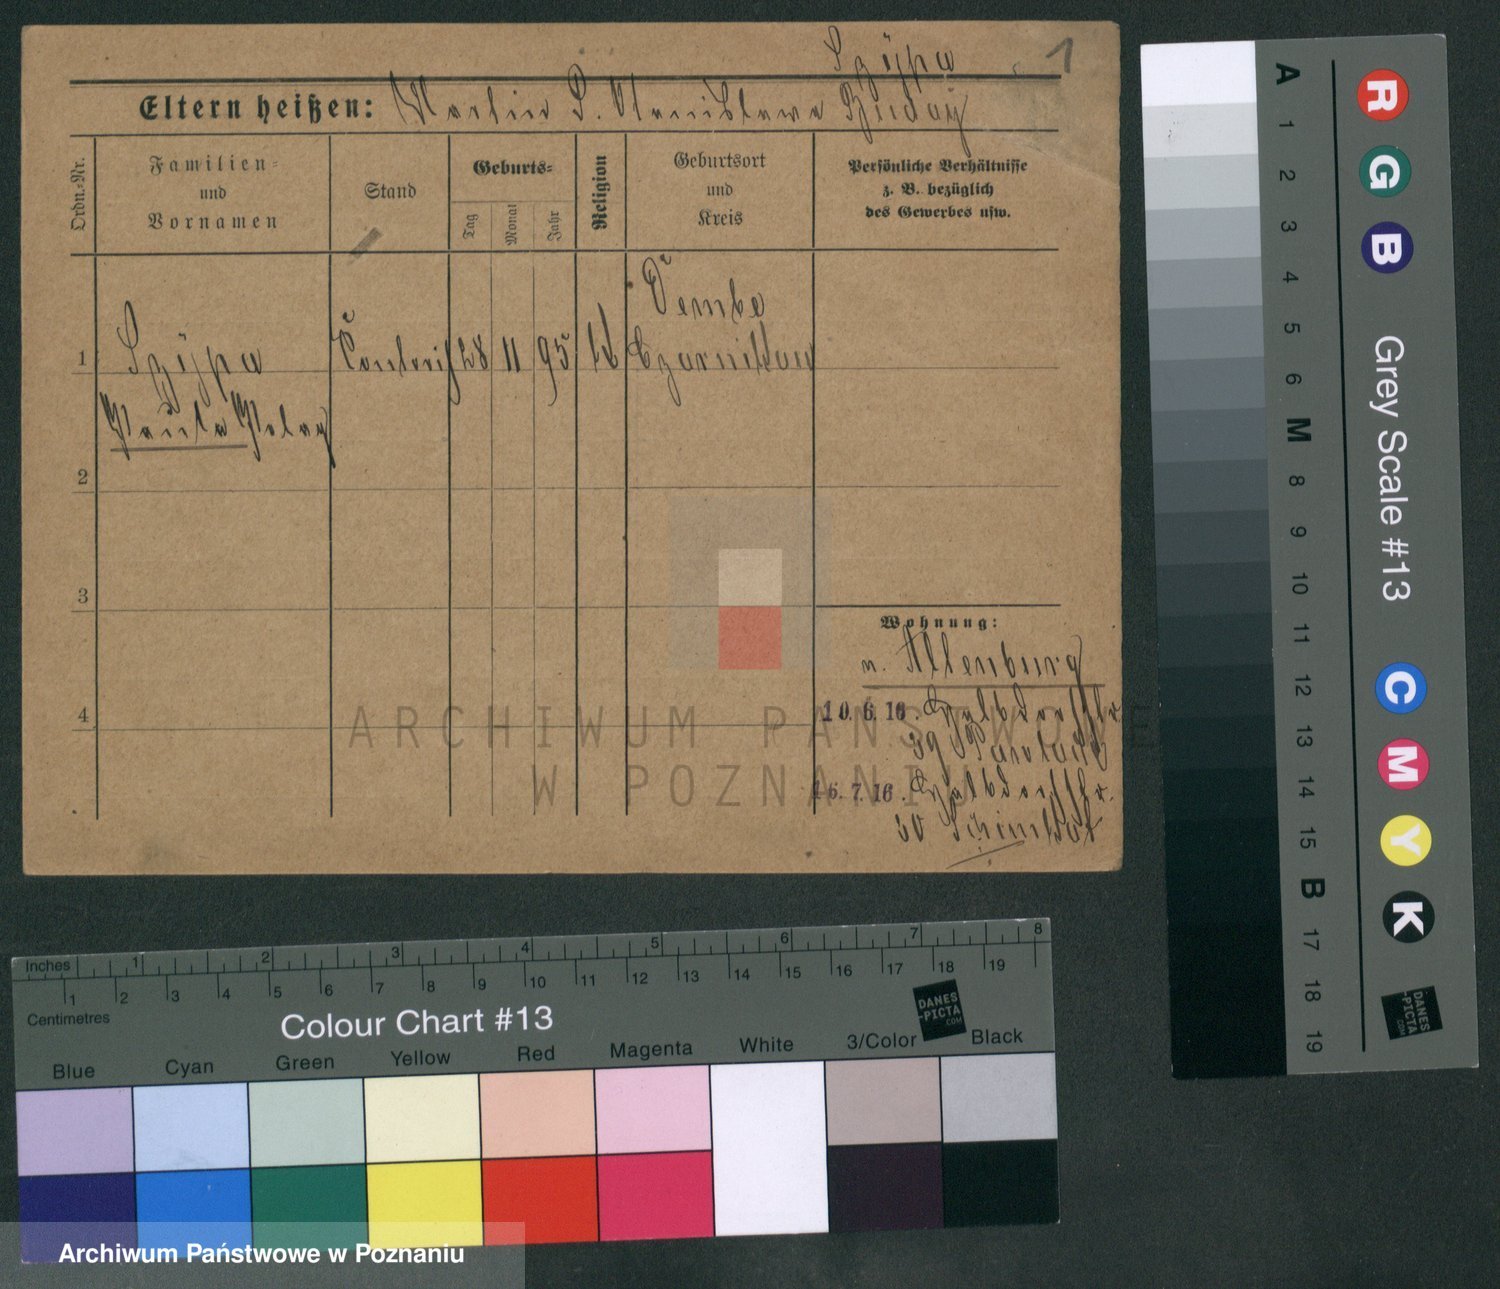 1
Szÿpa
Eltern heißen: Martin P. Stanislawa
Ordn.-Nr.
Familien-
und
Vornamen
Stand
Geburts-
Tag
Monat
Jahr
Religion
Geburtsort
und
Kreis
Persönliche Verhältnisse
z. B. bezüglich
des Gewerbes usw.
Dembe
1 Szÿpa 28 11 95 Czarnikau
2
3
4
Wohnung:
n. Altenburg
10.6.16.
39
16.7.16.
30
ARCHIWUM PAŃSTWOWE
W POZNANIU
A 1 2 3 4 5 6 M 8 9 10 11 12 13 14 15 B 17 18 19
R G B
Grey Scale #13
C M Y K
DANES
-PICTA
.COM
Inches 1 2 3 4 5 6 7 8
1 2 3 4 5 6 7 8 9 10 11 12 13 14 15 16 17 18 19
Centimetres
Colour Chart #13
DANES
-PICTA
.COM
Blue Cyan Green Yellow Red Magenta White 3/Color Black
Archiwum Państwowe w Poznaniu